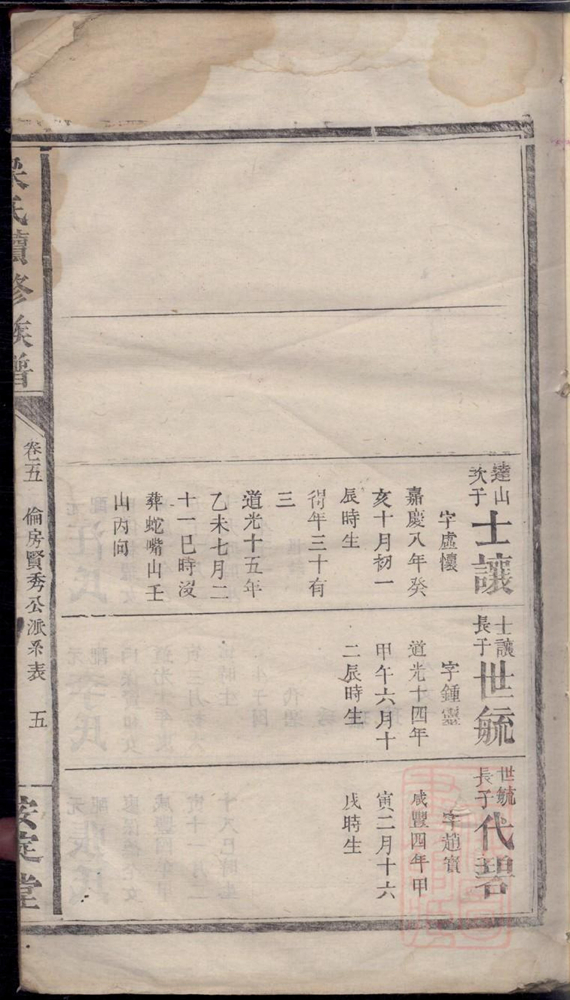 達山
次子
士讓
字虛懷
嘉慶八年癸
亥十月初一
辰時生
得年三十有
三
道光十五年
乙未七月二
十一巳時沒
葬蛇嘴山壬
山丙向
士讓
長子
世毓
字鍾靈
道光十四年
甲午六月十
二辰時生
世毓
長子
代碧
字趙寳
咸豐四年甲
寅二月十六
戌時生
氏續修族譜
卷五 倫房賢秀公派系表 五
安定堂